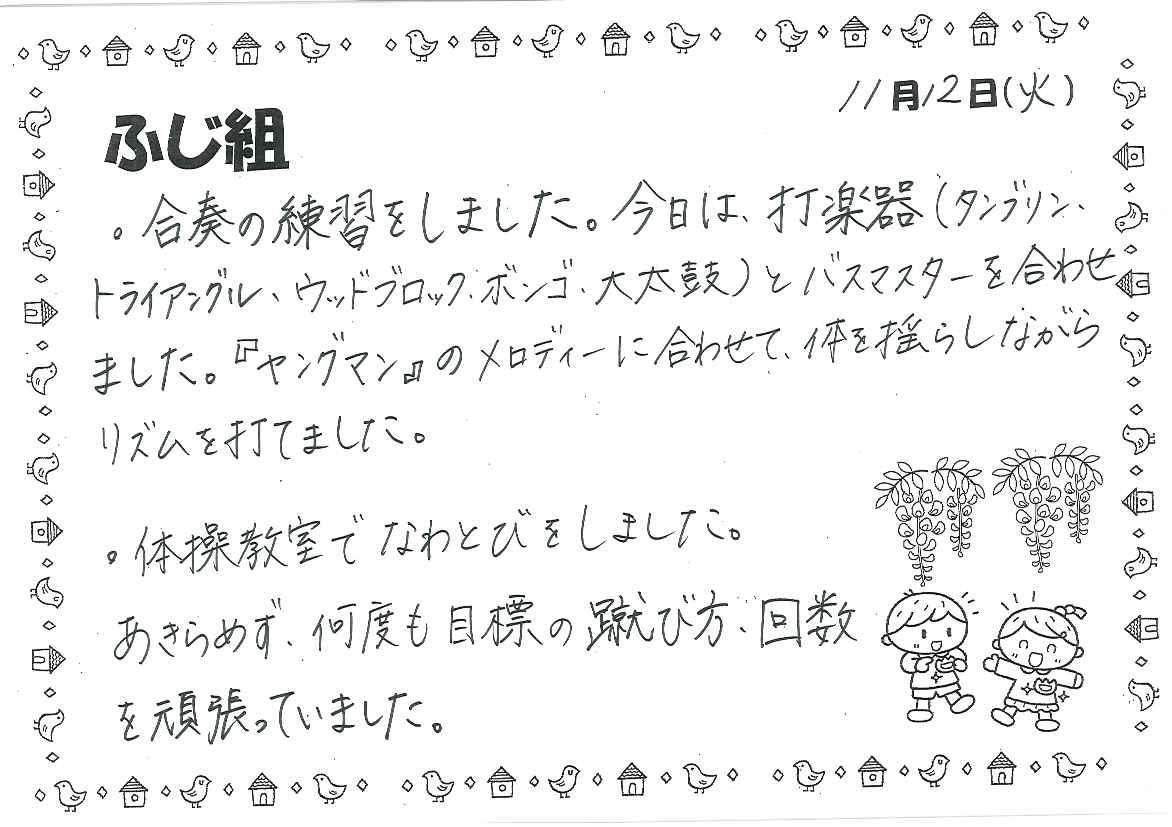 11月12日(火)
ふじ組
。合奏の練習をしました。今日は、打楽器(タンブリン、
トライアングル、ウッドブロック、ボンゴ、大太鼓)とバスマスターを合わせ
ました。『ヤングマン』のメロディーに合わせて、体を揺らしながら
リズムを打てました。
。体操教室でなわとびをしました。
あきらめず、何度も目標の蹴び方、回数
を頑張っていました。